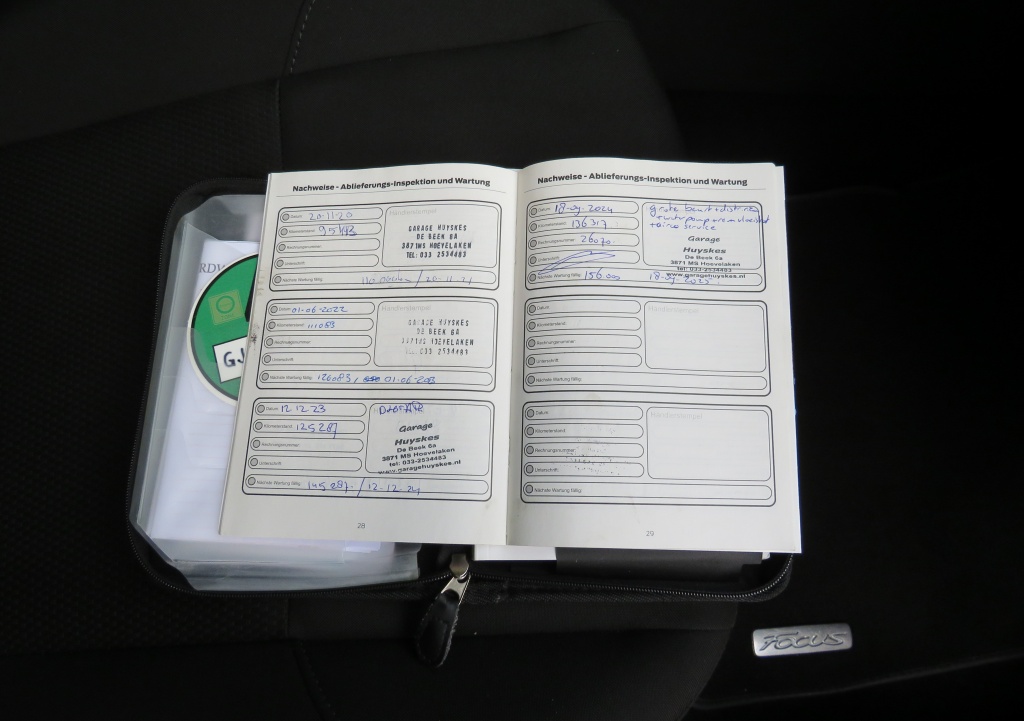 Nachweise - Ablieferungs-Inspektion und Wartung
Datum 20-11-20
Kilometerstand
Rechnungsnummer
Unterschrift
Nächste Wartung fällig / 20-11-21
Händlerstempel
GARAGE HUYSKES
DE BEEK 6A
3871MS HOEVELAKEN
TEL: 033 2534483
Datum 01-06-2022
Kilometerstand 111083
Rechnungsnummer
Unterschrift
Nächste Wartung fällig 126083, 01-06-203
Händlerstempel
GARAGE HUYSKES
DE BEEK 6A
3871MS HOEVELAKEN
TEL: 033 2534483
Datum 12 12 23
Kilometerstand 125287
Rechnungsnummer
Unterschrift
Nächste Wartung fällig 145287 / 12-12-24
Garage
Huyskes
De Beek 6a
3871 MS Hoevelaken
tel: 033-2534483
www.garagehuyskes.nl
28
Nachweise - Ablieferungs-Inspektion und Wartung
Datum 18-09-2024
Kilometerstand 136317
Rechnungsnummer 26070
Unterschrift
Nächste Wartung fällig 156.000 18-09-2025
grote beurt + distri
+ waterpomp + remvloeistof
+ airco service
Garage
Huyskes
De Beek 6a
3871 MS Hoevelaken
tel: 033-2534483
www.garagehuyskes.nl
Datum
Kilometerstand
Rechnungsnummer
Unterschrift
Nächste Wartung fällig
Händlerstempel
Datum
Kilometerstand
Rechnungsnummer
Unterschrift
Nächste Wartung fällig
Händlerstempel
29
RDW
GJ
FOCUS